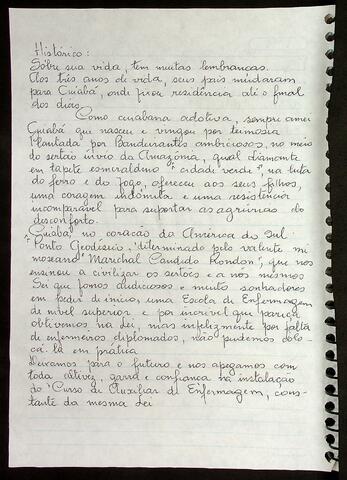 Histórico:
Sôbre sua vida, tem muitas lembranças.
Aos três anos de vida, seus pais mudaram
para Cuiabá, onde fixou residência até o final
dos dias.
Como cuiabana adotiva, sempre amei
Cuiabá que nasceu e vingou por teimosia
Plantada por Bandeirantes ambiciosos, no meio
do sertão ínvio da Amazônia, qual diamante
em tapete esmeraldino "cidade verde", na luta
do ferro e do fogo, ofereceu aos seus filhos,
uma coragem indômita e uma resistência
incomparável para suportar as agruras do
desconforto.
Cuiabá, no coração da América do Sul
"Ponto Geodésico", determinado pelo valente mi
moseano "Marchal Candido Rondon", que nos
ensinou a civilizar os sertões e a nós mesmos
Sei que fomos audiciosos e muito sonhadores
em pedir de início, uma Escola de Enfermagem
de nível superior e por incrível que pareça
obtivemos na Lei, mas infelizmente por falta
de enfermeiros diplomados, não pudemos colo-
cá-la em prática
Deixamos para o futuro e nos apegamos com
toda altivez, garra e confiança na instalação
do "Curso de Auxiliar de Enfermagem, cons-
tante da mesma Lei